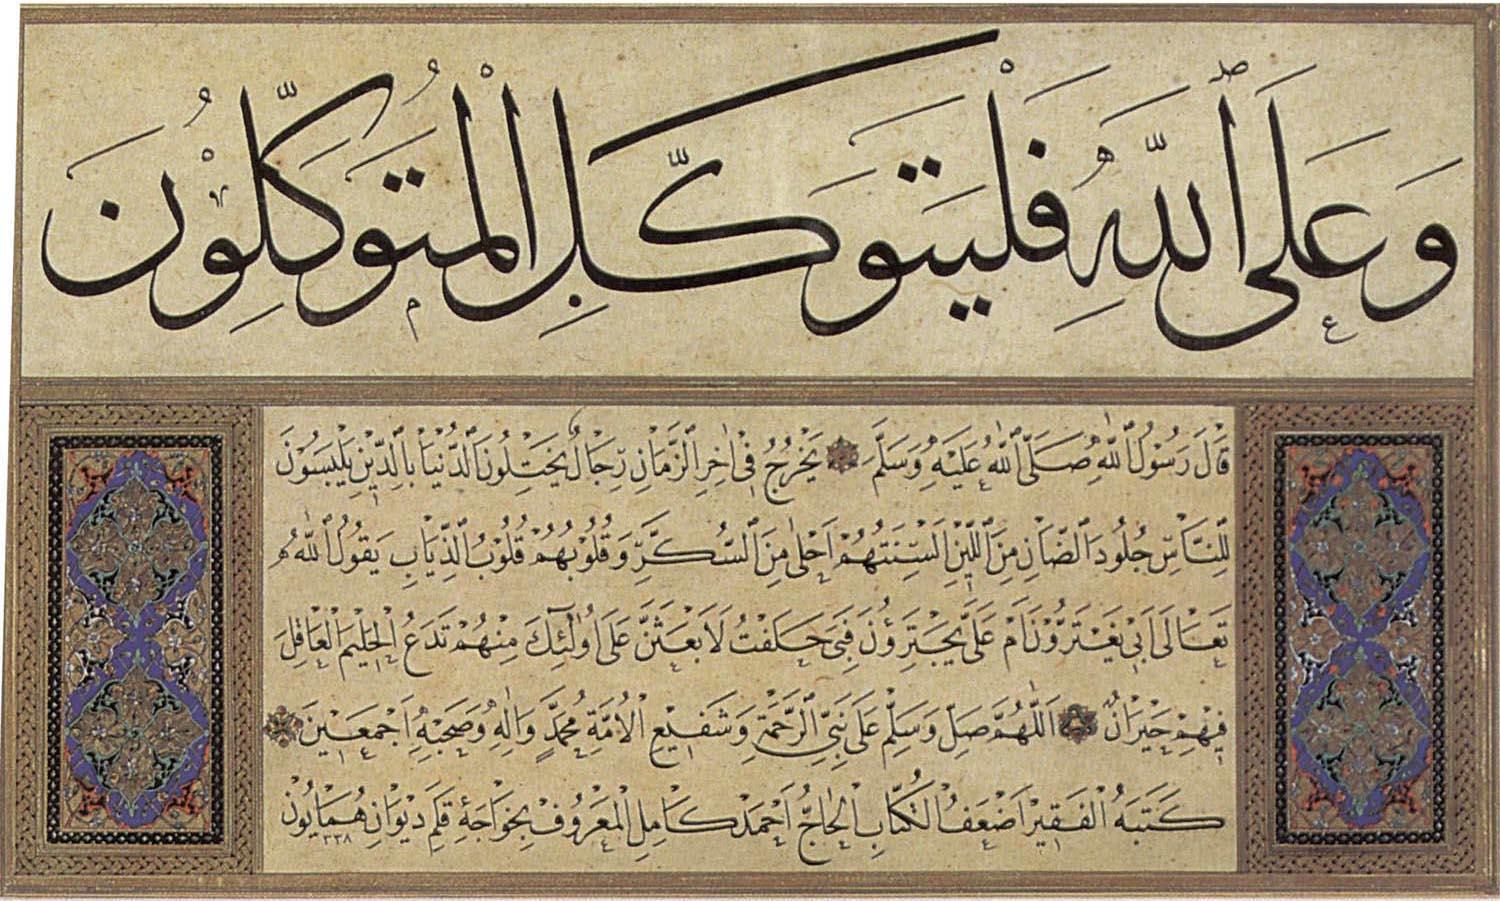 وَعَلَى ٱللَّهِ فَلْيَتَوَكَّلِ الْمُتَوَكِّلُونَ
قَالَ رَسُولُ اللّٰهِ صَلَّى ٱللّٰهُ عَلَيْهِ وَسَلَّمَ يَخْرُجُ فِى اٰخِرِ ٱلزَّمَانِ رِجَالٌ يَخْتِلُونَ ٱلدُّنْيَا بِالدِّيْنِ يَلْبَسُوْنَ
لِلنَّاسِ جُلُودَ ٱلضَّانِ مِنَ ٱللِّيْنِ اَلْسِنَتُهُمْ اَحْلٰى مِنَ ٱلسُّكَّرِ وَقُلُوْبُهُمْ قُلُوْبُ الذِّيَابِ يَقُولُ ٱللّٰهُ
تَعَالَى اَبِى يَغْتَرُّوْنَ اَمْ عَلَىَّ يَجْتَرِؤُنَ فَبِى حَلَفْتُ لَاَبْعَثَنَّ عَلٰى اُولٰٓئِكَ مِنْهُمْ تَدَعُ الْحَلِيْمَ الْعَاقِلَ
فِيْهِمْ حَيْرَانٌ اَللّٰهُمَّ صَلِّ وَسَلِّمْ عَلٰى نَبِىِّ ٱلرَّحْمَةِ وَشَفِيْعِ الْاُمَّةِ مُحَمَّدٍ وَاٰلِهٖ وَصَحْبِهٖ اَجْمَعِيْنَ
كَتَبَهُ الْفَقِيْرُ اَضْعَفُ الْكُتَّابِ الْحَاجُّ اَحْمَدْ كَامِلِ الْمَعْرُوفْ بِخَوَاجَهٔ قَلَمِ دِيْوَانِ هُمَايُونْ ١٣٣٨